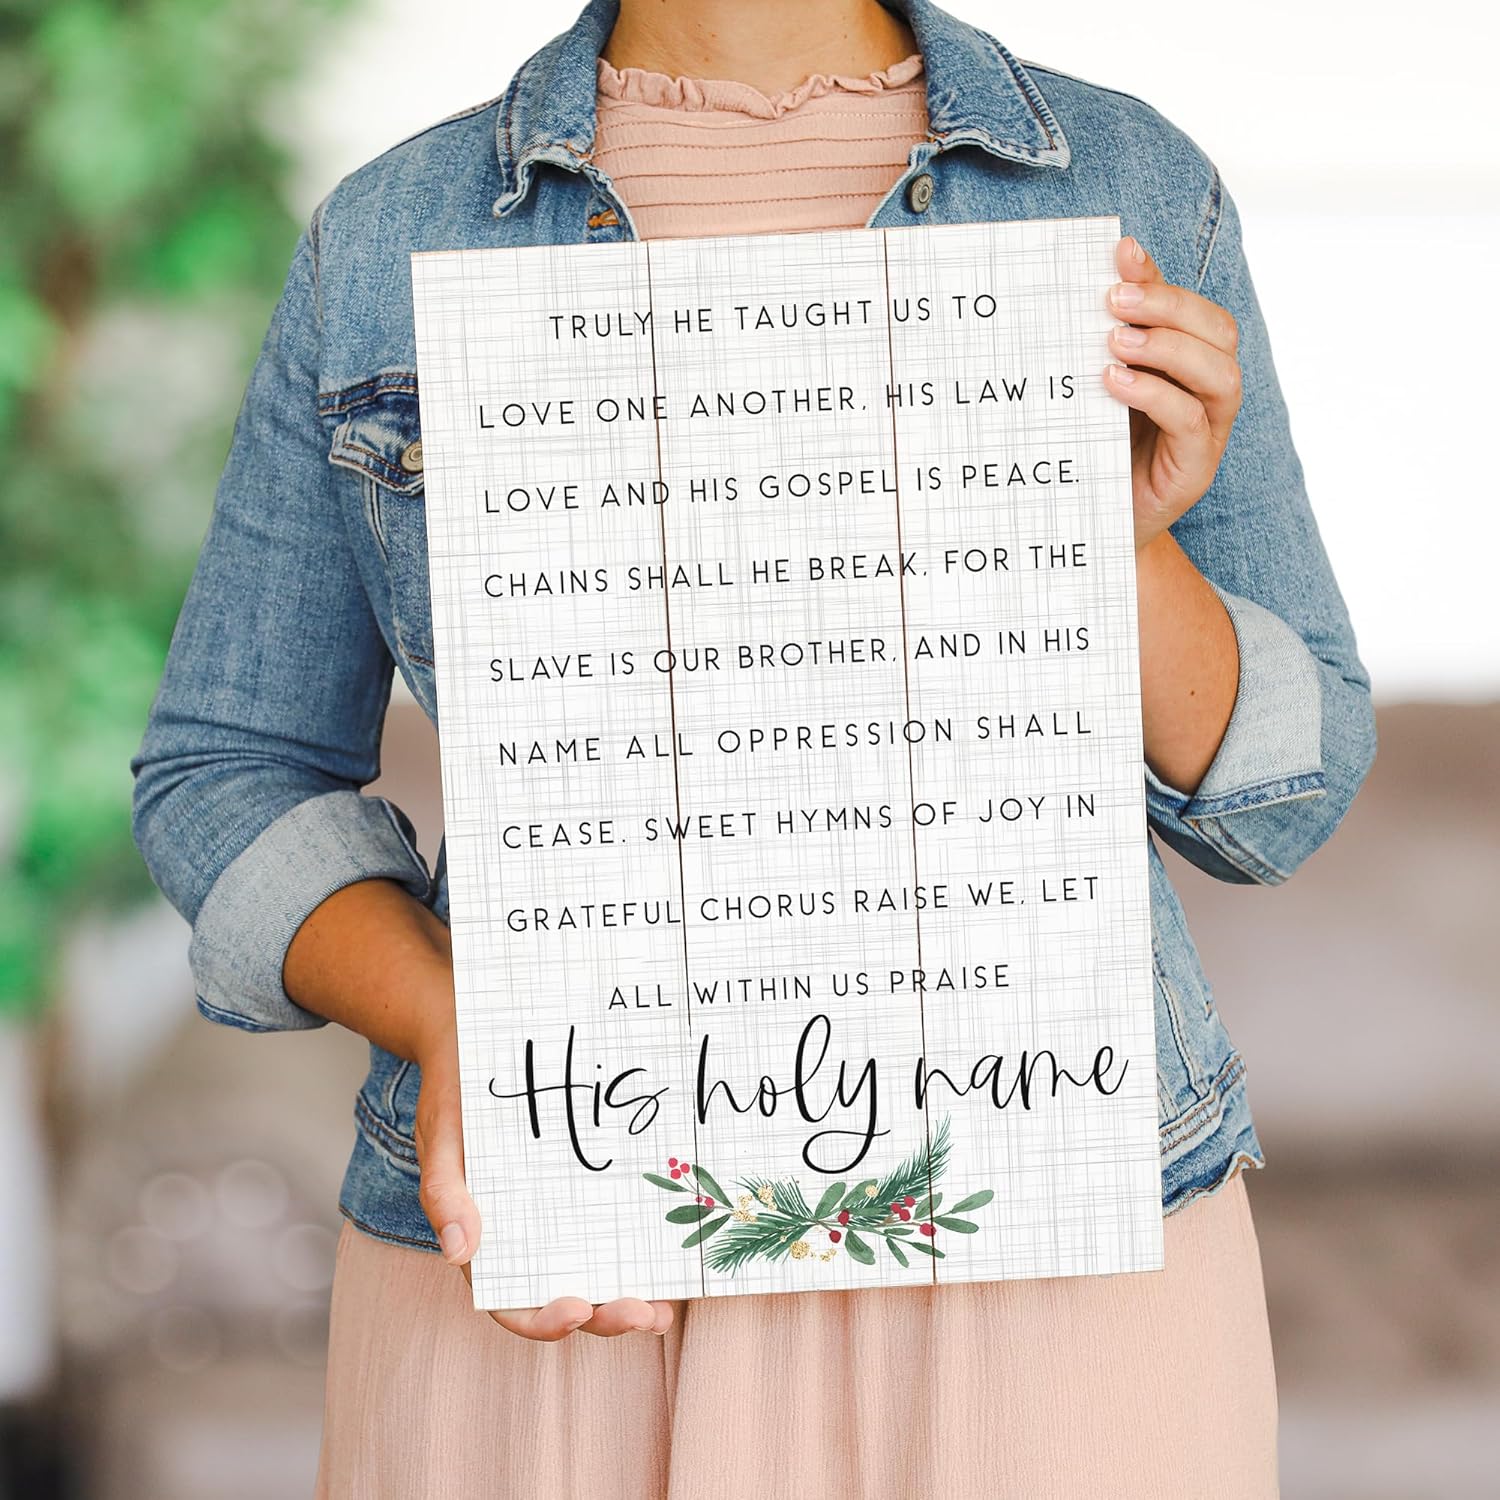 TRULY HE TAUGHT US TO
LOVE ONE ANOTHER, HIS LAW IS
LOVE AND HIS GOSPEL IS PEACE.
CHAINS SHALL HE BREAK, FOR THE
SLAVE IS OUR BROTHER, AND IN HIS
NAME ALL OPPRESSION SHALL
CEASE. SWEET HYMNS OF JOY IN
GRATEFUL CHORUS RAISE WE, LET
ALL WITHIN US PRAISE
His holy name